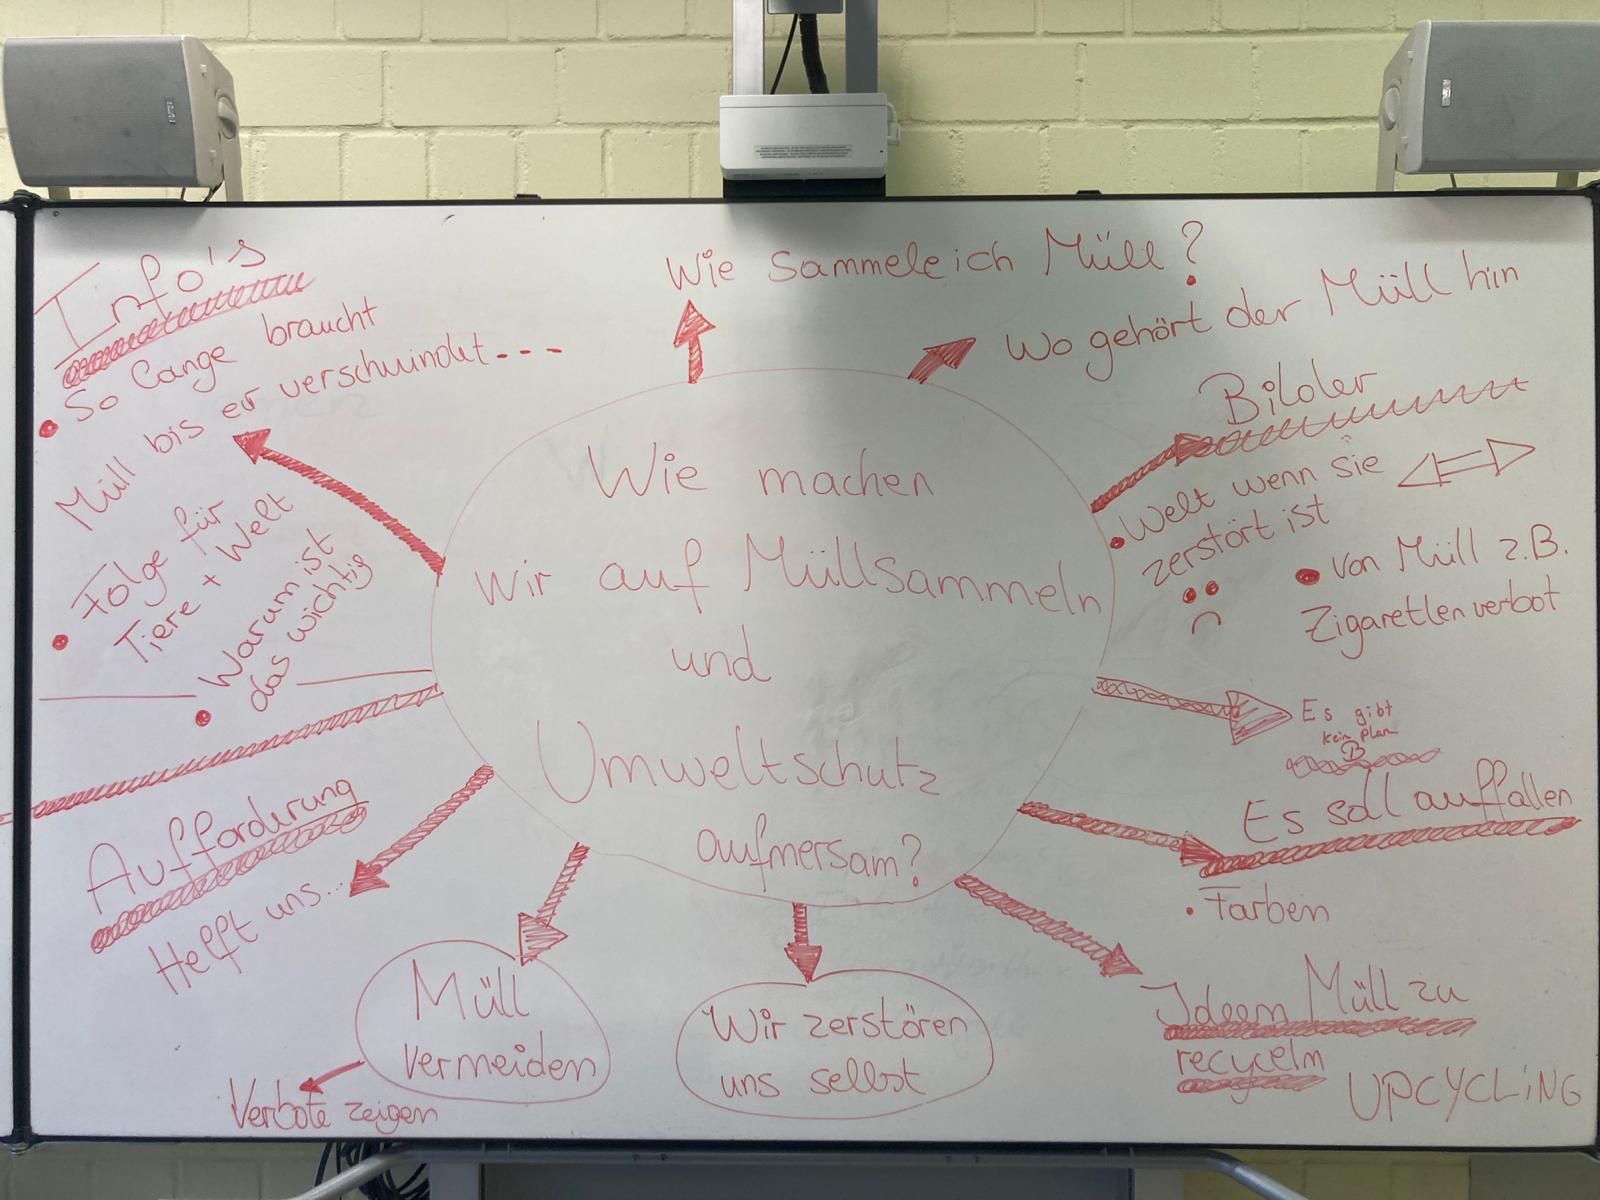 Info's
So lange braucht
Müll bis er verschwindet---
Folge für
Tiere + Welt
Warum ist
das wichtig
Wie sammele ich Müll?
Wo gehört der Müll hin
Bilder
Welt wenn sie
zerstört ist
von Müll z.B.
Zigaretten verbot
Es gibt
kein plan
B
Es soll auffallen
Farben
Ideen Müll zu
recyceln
UPCYCLiNG
Wie machen
wir auf Müllsammeln
und
Umweltschutz
aufmersam?
Aufforderung
Helft uns...
Müll
vermeiden
Verbote zeigen
Wir zerstören
uns selbst